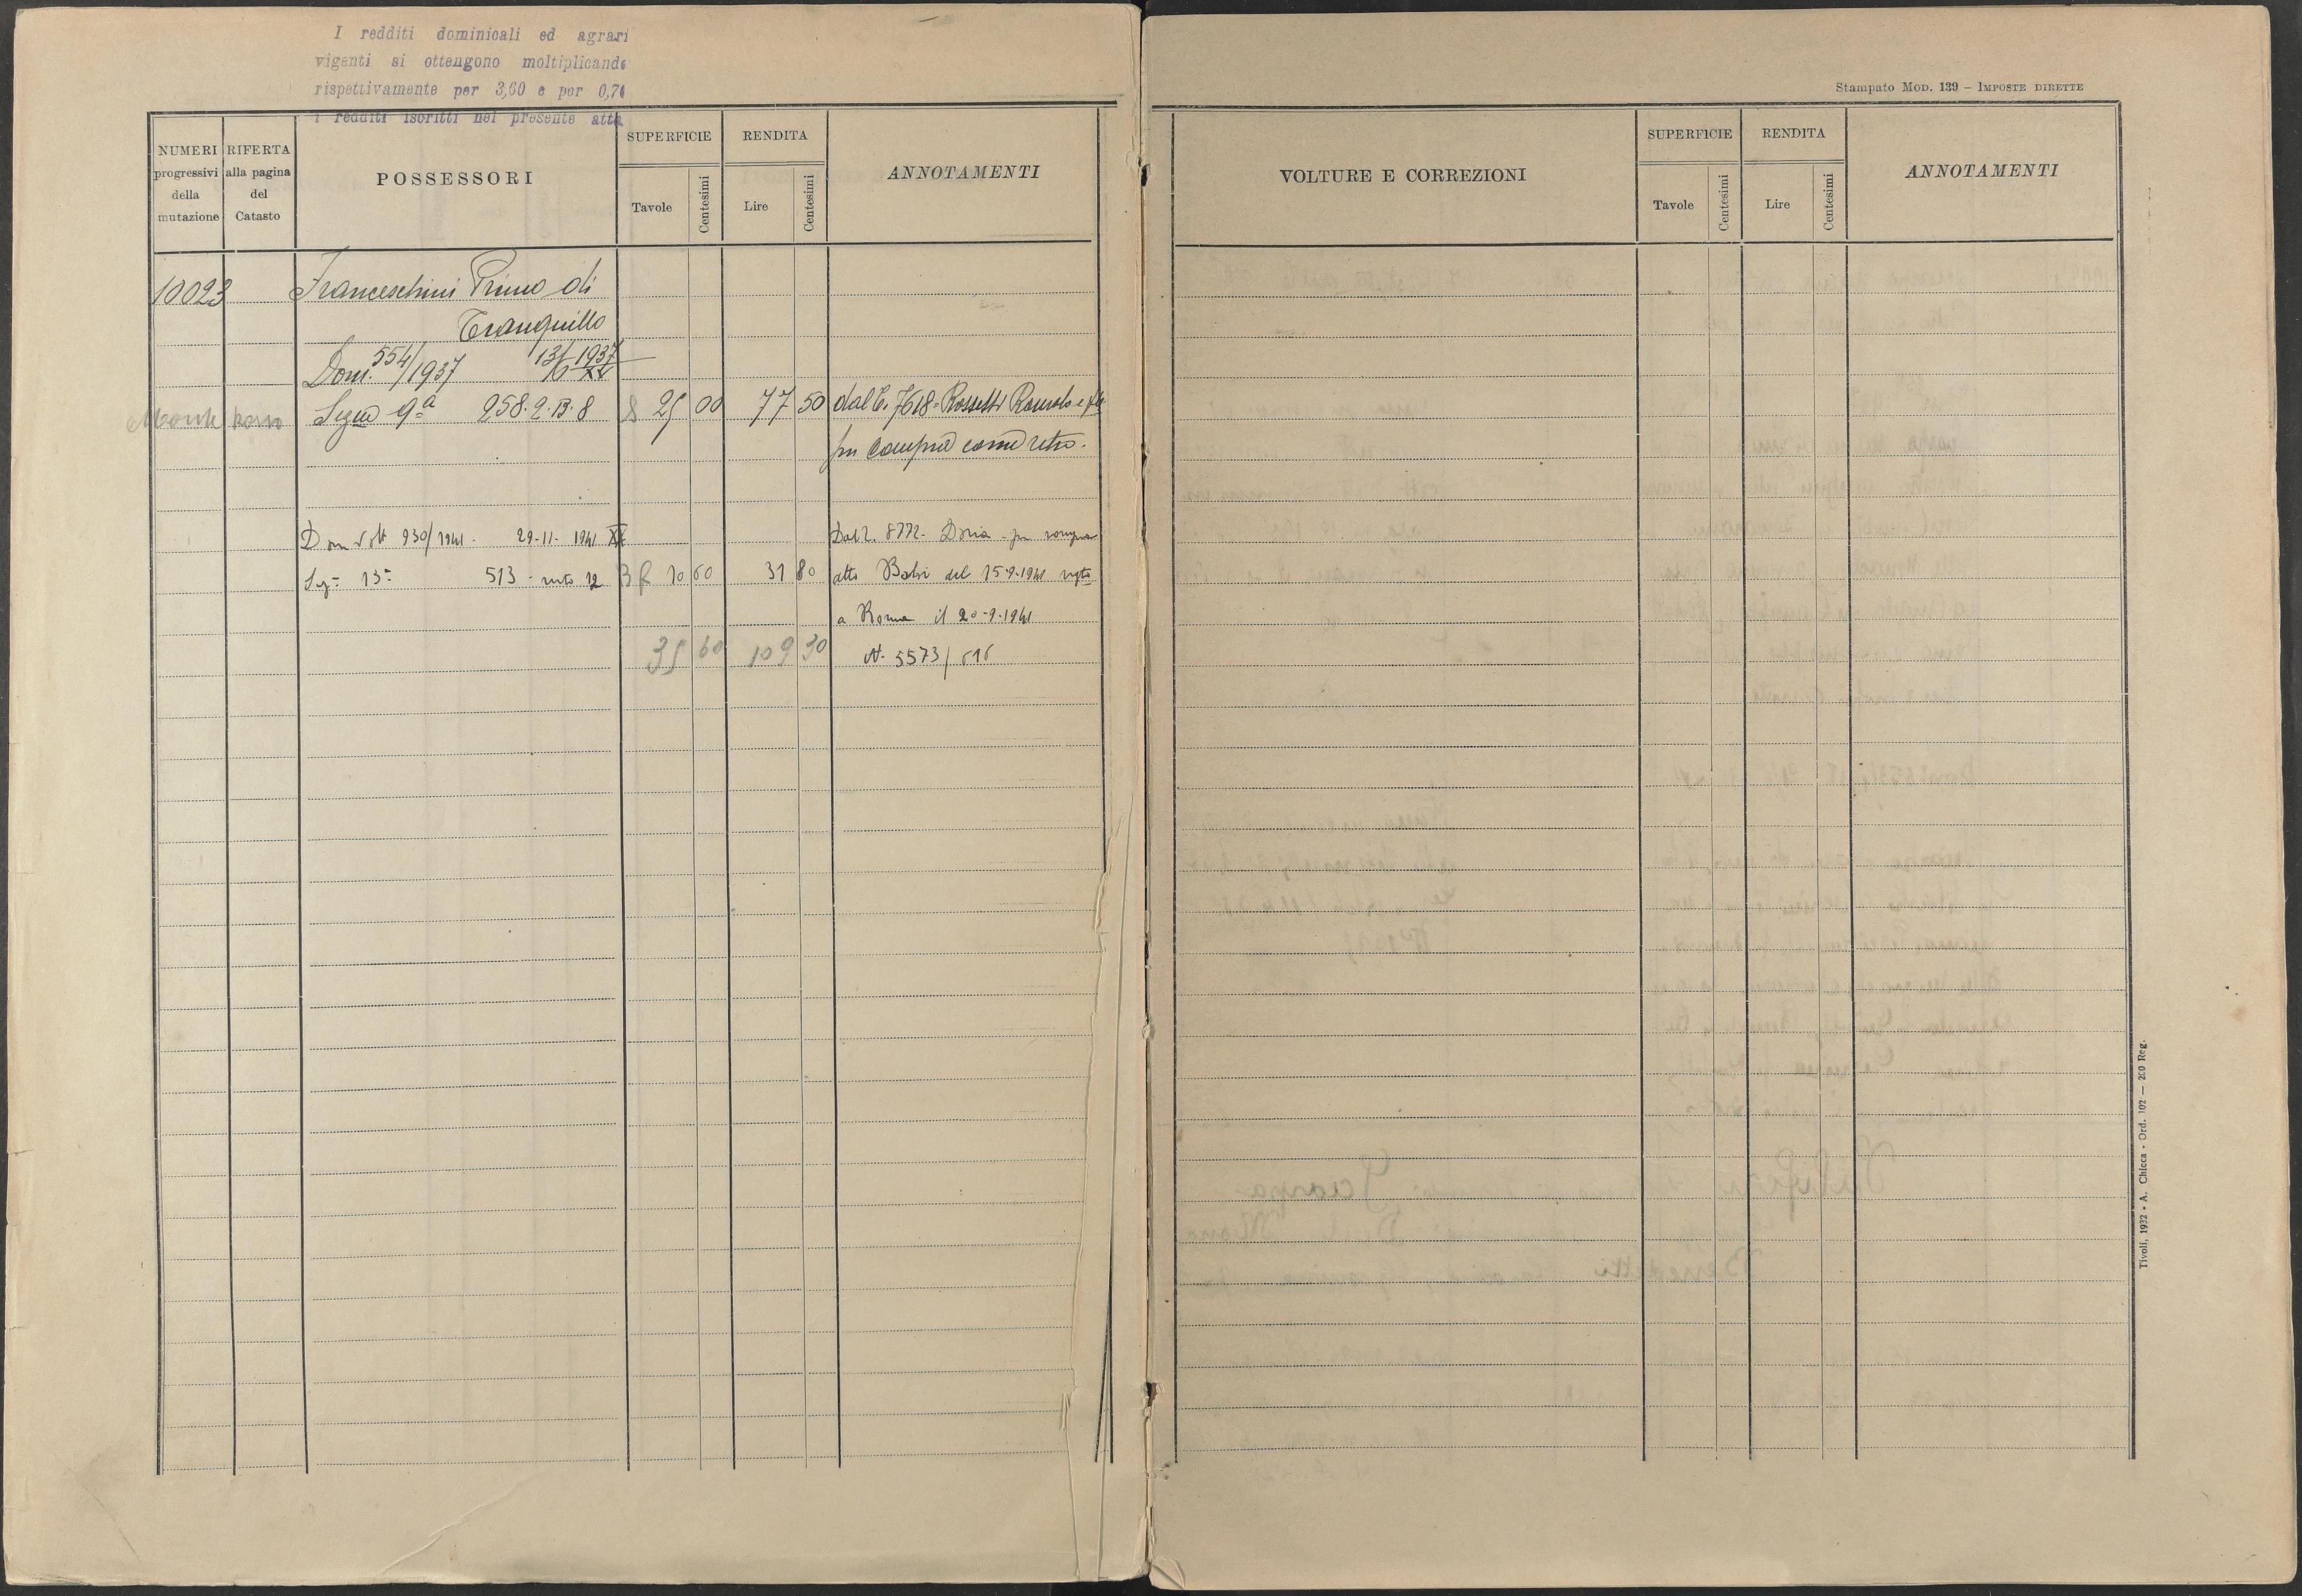 I redditi dominicali ed agrari
vigenti si ottengono moltiplicando
rispettivamente per 3,60 e per 0,7
i redditi iscritti nel presente atto
Stampato Mod. 139 – Imposte dirette
NUMERI progressivi della mutazione
RIFERTA alla pagina del Catasto
POSSESSORI
SUPERFICIE
Tavole
Centesimi
RENDITA
Lire
Centesimi
ANNOTAMENTI
VOLTURE E CORREZIONI
SUPERFICIE
Tavole
Centesimi
RENDITA
Lire
Centesimi
ANNOTAMENTI
10023 Franceschini Primo di
Tranquillo
Dom. 554/1937 1937
Sezne 9ª 258.2.B.8 25 00 77 50 dal C. 7618 Rossetti Romolo e
per compra come retro.
Dom volt 930/1941. 29-11-1941 XX Dal C. 8772. Doria - per compra
Sez= 13= 513 12 10 60 31 80 atto del 15-9-1941
a Roma il 20-9-1941
35 60 109 30 N. 5573/
Tivoli, 1932 - A. Chicca - Ord. 102 — 200 Reg.